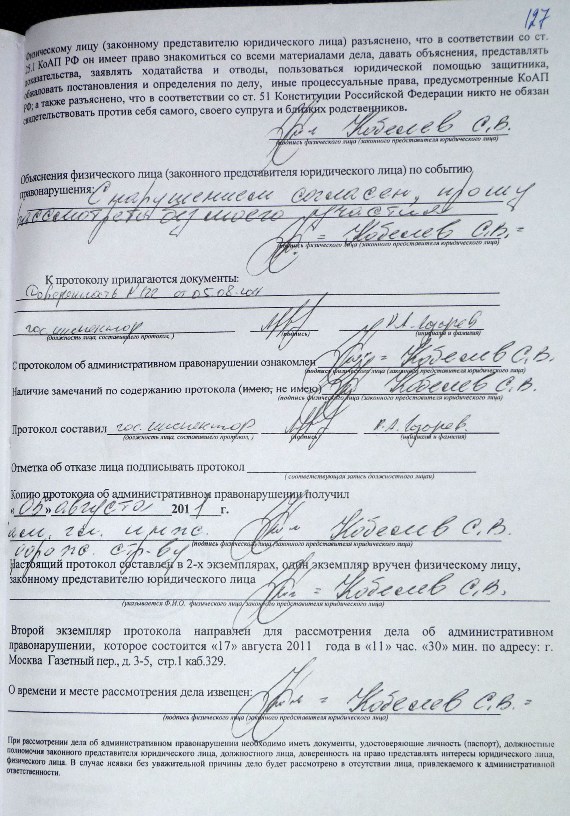 127
Физическому лицу (законному представителю юридического лица) разъяснено, что в соответствии со ст.
25.1 КоАП РФ он имеет право знакомиться со всеми материалами дела, давать объяснения, представлять
доказательства, заявлять ходатайства и отводы, пользоваться юридической помощью защитника,
обжаловать постановления и определения по делу, иные процессуальные права, предусмотренные КоАП
РФ; а также разъяснено, что в соответствии со ст. 51 Конституции Российской Федерации никто не обязан
свидетельствовать против себя самого, своего супруга и близких родственников.
Кобелев С.В.
(подпись физического лица (законного представителя юридического лица)
Объяснения физического лица (законного представителя юридического лица) по событию
правонарушения: С нарушением согласен, прошу
рассмотреть без моего участия
= Кобелев С.В. =
(подпись физического лица (законного представителя юридического лица)
К протоколу прилагаются документы:
Доверенность № 122 от 05.08.2011
гос. инспектор
(должность лица, составившего протокол, ) (подпись) (инициалы и фамилия)
С протоколом об административном правонарушении ознакомлен = Кобелев С.В.
(подпись физического лица (законного представителя юридического лица)
Наличие замечаний по содержанию протокола (имею, не имею) Кобелев С.В.
(подпись физического лица (законного представителя юридического лица)
Протокол составил гос. инспектор
(должность лица, составившего протокол, ) (подпись) (инициалы и фамилия)
Отметка об отказе лица подписывать протокол
( соответствующая запись должностного лица)
Копию протокола об административном правонарушении получил
« 05 » августа 2011 г.
зам. гл. инж. Кобелев С.В.
(подпись физического лица (законного представителя юридического лица)
дорожн. стр-ву
Настоящий протокол составлен в 2-х экземплярах, один экземпляр вручен физическому лицу,
законному представителю юридического лица = Кобелев С.В.
(указывается Ф.И.О. физического лица/законного представителя юридического лица)
Второй экземпляр протокола направлен для рассмотрения дела об административном
правонарушении, которое состоится «17» августа 2011 года в «11» час. «30» мин. по адресу: г.
Москва Газетный пер., д. 3-5, стр.1 каб.329.
О времени и месте рассмотрения дела извещен: = Кобелев С.В. =
(подпись физического лица (законного представителя юридического лица)
При рассмотрении дела об административном правонарушении необходимо иметь документы, удостоверяющие личность (паспорт), должностные
полномочия законного представителя юридического лица, должностного лица, доверенность на право представлять интересы юридического лица,
физического лица. В случае неявки без уважительной причины дело будет рассмотрено в отсутствии лица, привлекаемого к административной
ответственности.